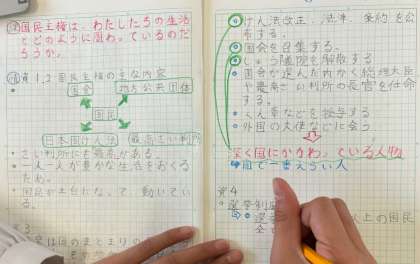 国民主権は、わたしたちの生活
とどのように関わっているのだ
ろうか。
資1,2 国民主権の主な内容
国会 地方公共団体
国民
日本国けん法 最高さい判所
・さい判所にも最高がある。
・一人一人が豊かな生活をおくる
ため。
・国民が土台になって動いてい
る。
けん法改正、法律、条約を公
布する。
国会を召集する。
しゅう議院を解散する
国会が選んだ内かく総理大臣
や最高さい判所の長官を任命
する。
くん章などを授与する
外国の大使などに会う。
深く国にかかわっている人物
国で一番えらい人
資4
・選挙制度
以上の国民